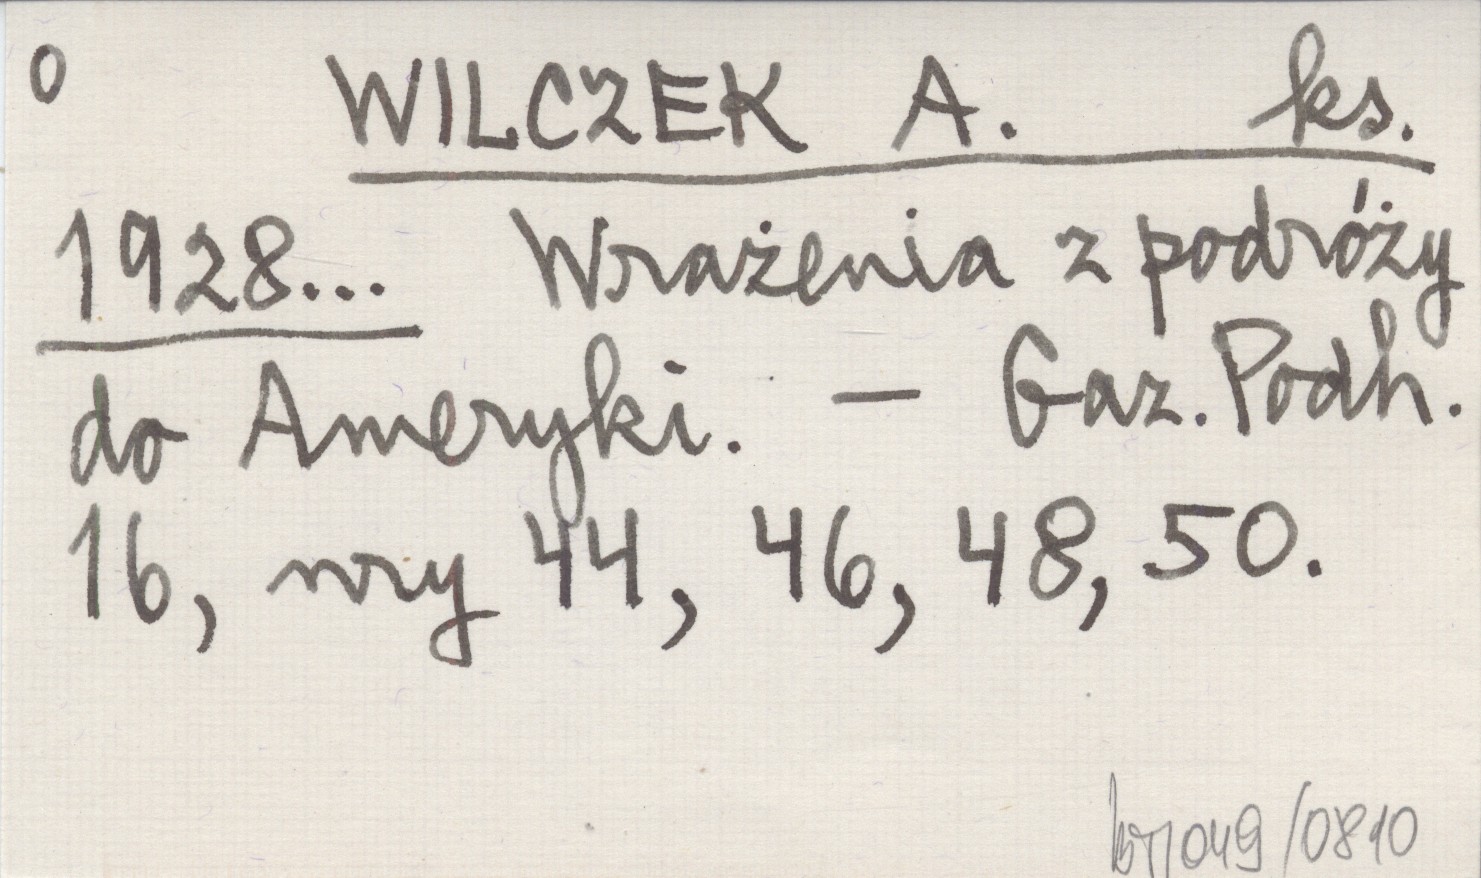 0 WILCZEK A. ks.
1928... Wrażenia z podróży
do Ameryki. – Gaz. Podh.
16, nry 44, 46, 48, 50.
/0810